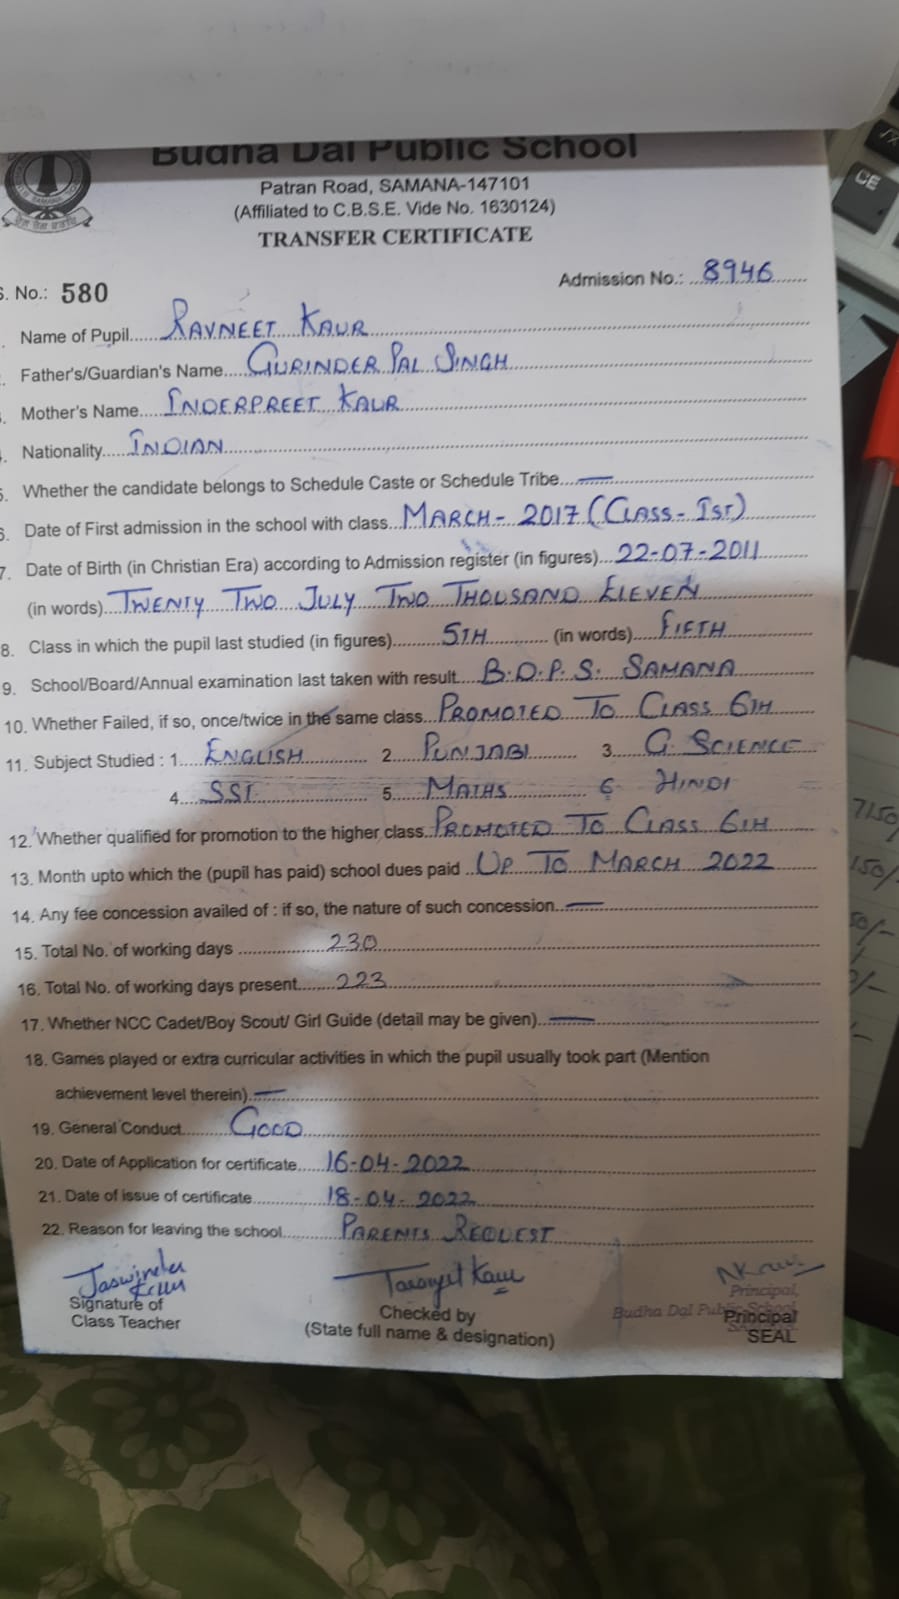 Budha Dal Public School
Patran Road, SAMANA-147101
(Affiliated to C.B.S.E. Vide No. 1630124)
TRANSFER CERTIFICATE
S. No.: 580 Admission No.: 8946
Name of Pupil RAVNEET KAUR
Father's/Guardian's Name GURINDER PAL SINGH
Mother's Name INDERPREET KAUR
Nationality INDIAN
5. Whether the candidate belongs to Schedule Caste or Schedule Tribe —
6. Date of First admission in the school with class MARCH - 2017 (CLASS - IST)
7. Date of Birth (in Christian Era) according to Admission register (in figures) 22-07-2011
(in words) TWENTY TWO JULY TWO THOUSAND ELEVEN
8. Class in which the pupil last studied (in figures) 5TH (in words) FIFTH
9. School/Board/Annual examination last taken with result B.D.P.S. SAMANA
10. Whether Failed, if so, once/twice in the same class PROMOTED TO CLASS 6TH
11. Subject Studied : 1 ENGLISH 2 PUNJABI 3 G. SCIENCE
4 SST 5 MATHS 6 HINDI
12. Whether qualified for promotion to the higher class PROMOTED TO CLASS 6TH
13. Month upto which the (pupil has paid) school dues paid UP TO MARCH 2022
14. Any fee concession availed of : if so, the nature of such concession —
15. Total No. of working days 230
16. Total No. of working days present 223
17. Whether NCC Cadet/Boy Scout/ Girl Guide (detail may be given) —
18. Games played or extra curricular activities in which the pupil usually took part (Mention
achievement level therein) —
19. General Conduct GOOD
20. Date of Application for certificate 16-04-2022
21. Date of issue of certificate 18-04-2022
22. Reason for leaving the school PARENTS REQUEST
Jaswinder Kaur
Signature of
Class Teacher
Kaur
Checked by
(State full name & designation)
Principal,
Budha Dal Public School
Principal
SEAL
CE
7150/
150/-
50/-